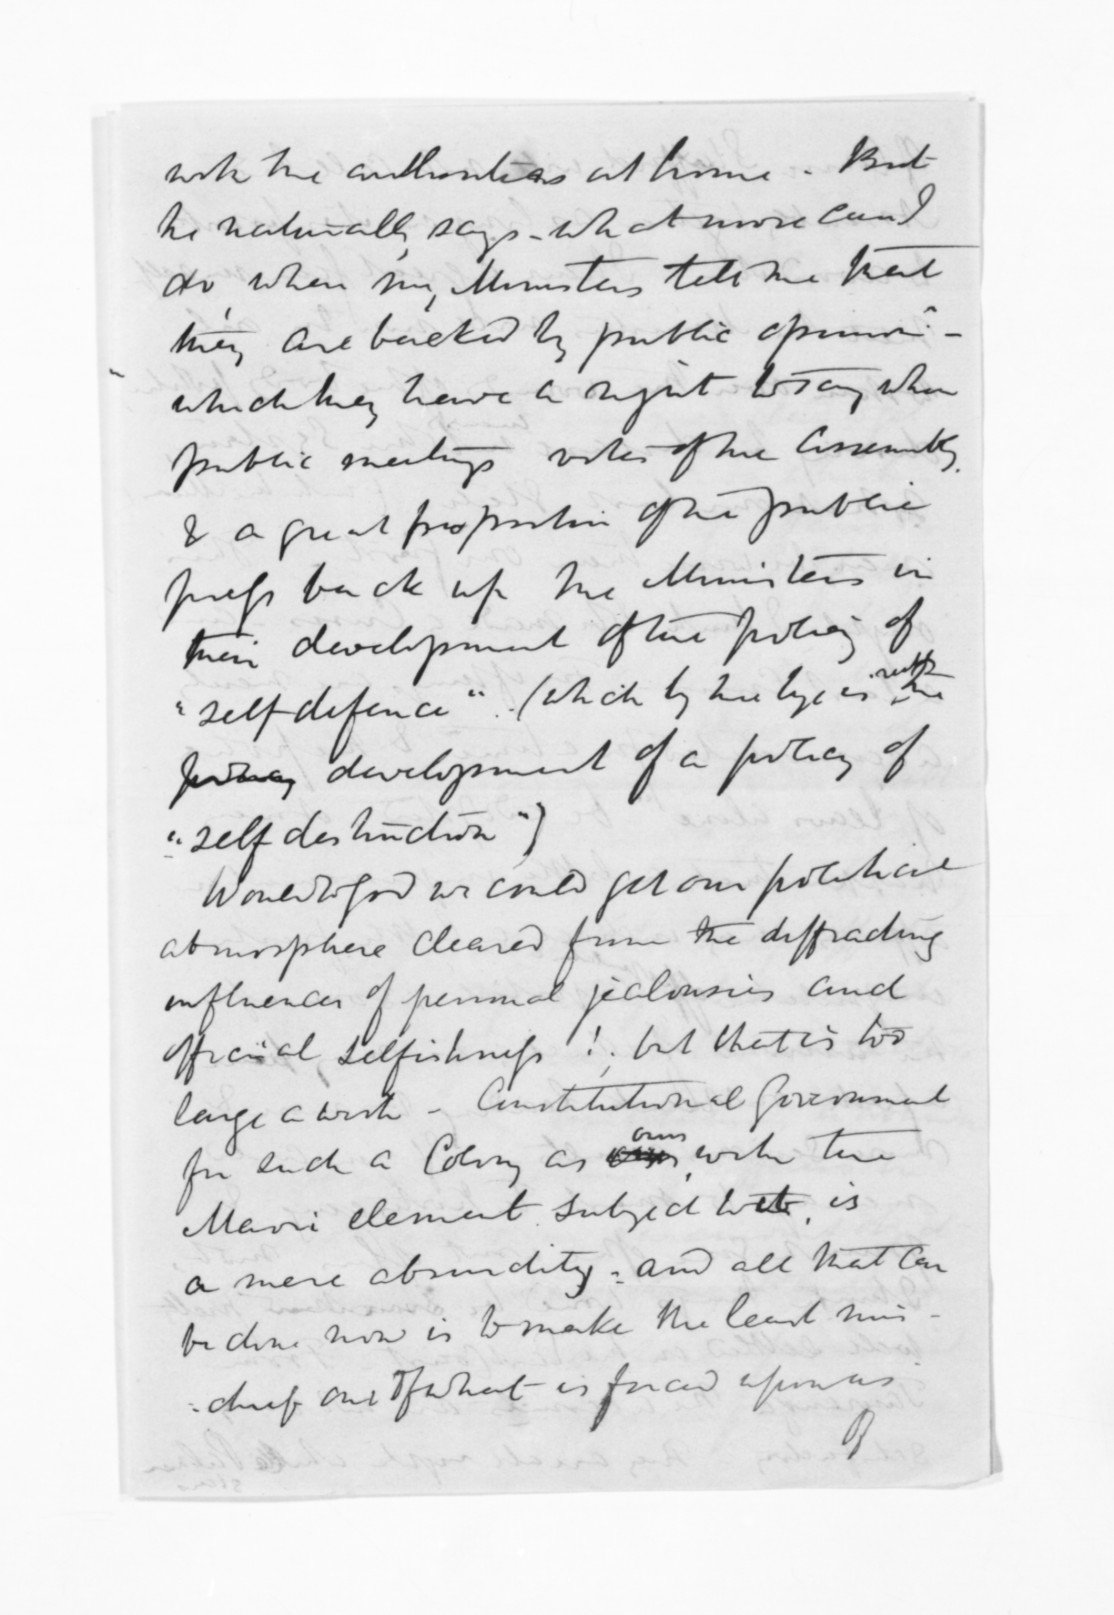 with the authorities at home - But
he naturally says - what more can I
do, when my Ministers tell me that
they are backed by public opinion -
which they have a right to say when
public meetings votes of the Assembly,
& a great proportion of the public
press back up the Ministers in
their development of the policy of
"self defence" (which by the bye is rather the
policy development of a policy of
"self destruction")
Would to God we could get our political
atmosphere cleared from the diffracting
influences of personal jealousies and
official selfishness! but that is too
large a wish - Constitutional Government
for such a Colony as ours, with the
Maori element subject to it, is
a mere absurdity - and all that can
be done now is to make the least mis-
-chief out of what is forced upon us